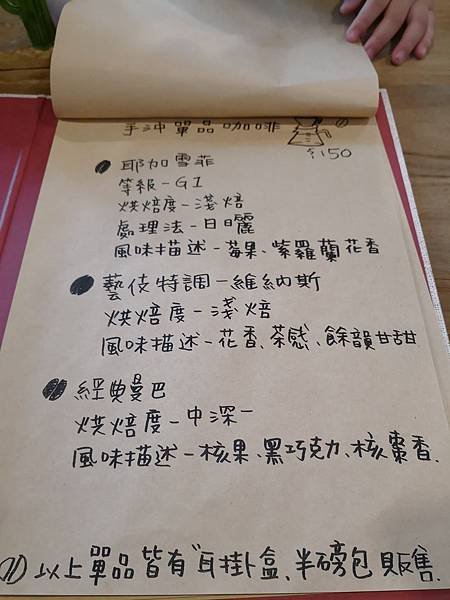 手沖單品咖啡
$150
耶加雪菲
等級-G1
烘焙度-淺焙
處理法-日曬
風味描述-莓果、紫羅蘭花香
藝伎特調-維納斯
烘焙度-淺焙
風味描述-花香、茶感、餘韻甘甜
經典曼巴
烘焙度-中深-
風味描述-核果、黑巧克力、核棗香.
以上單品皆有耳掛盒、半磅包販售.